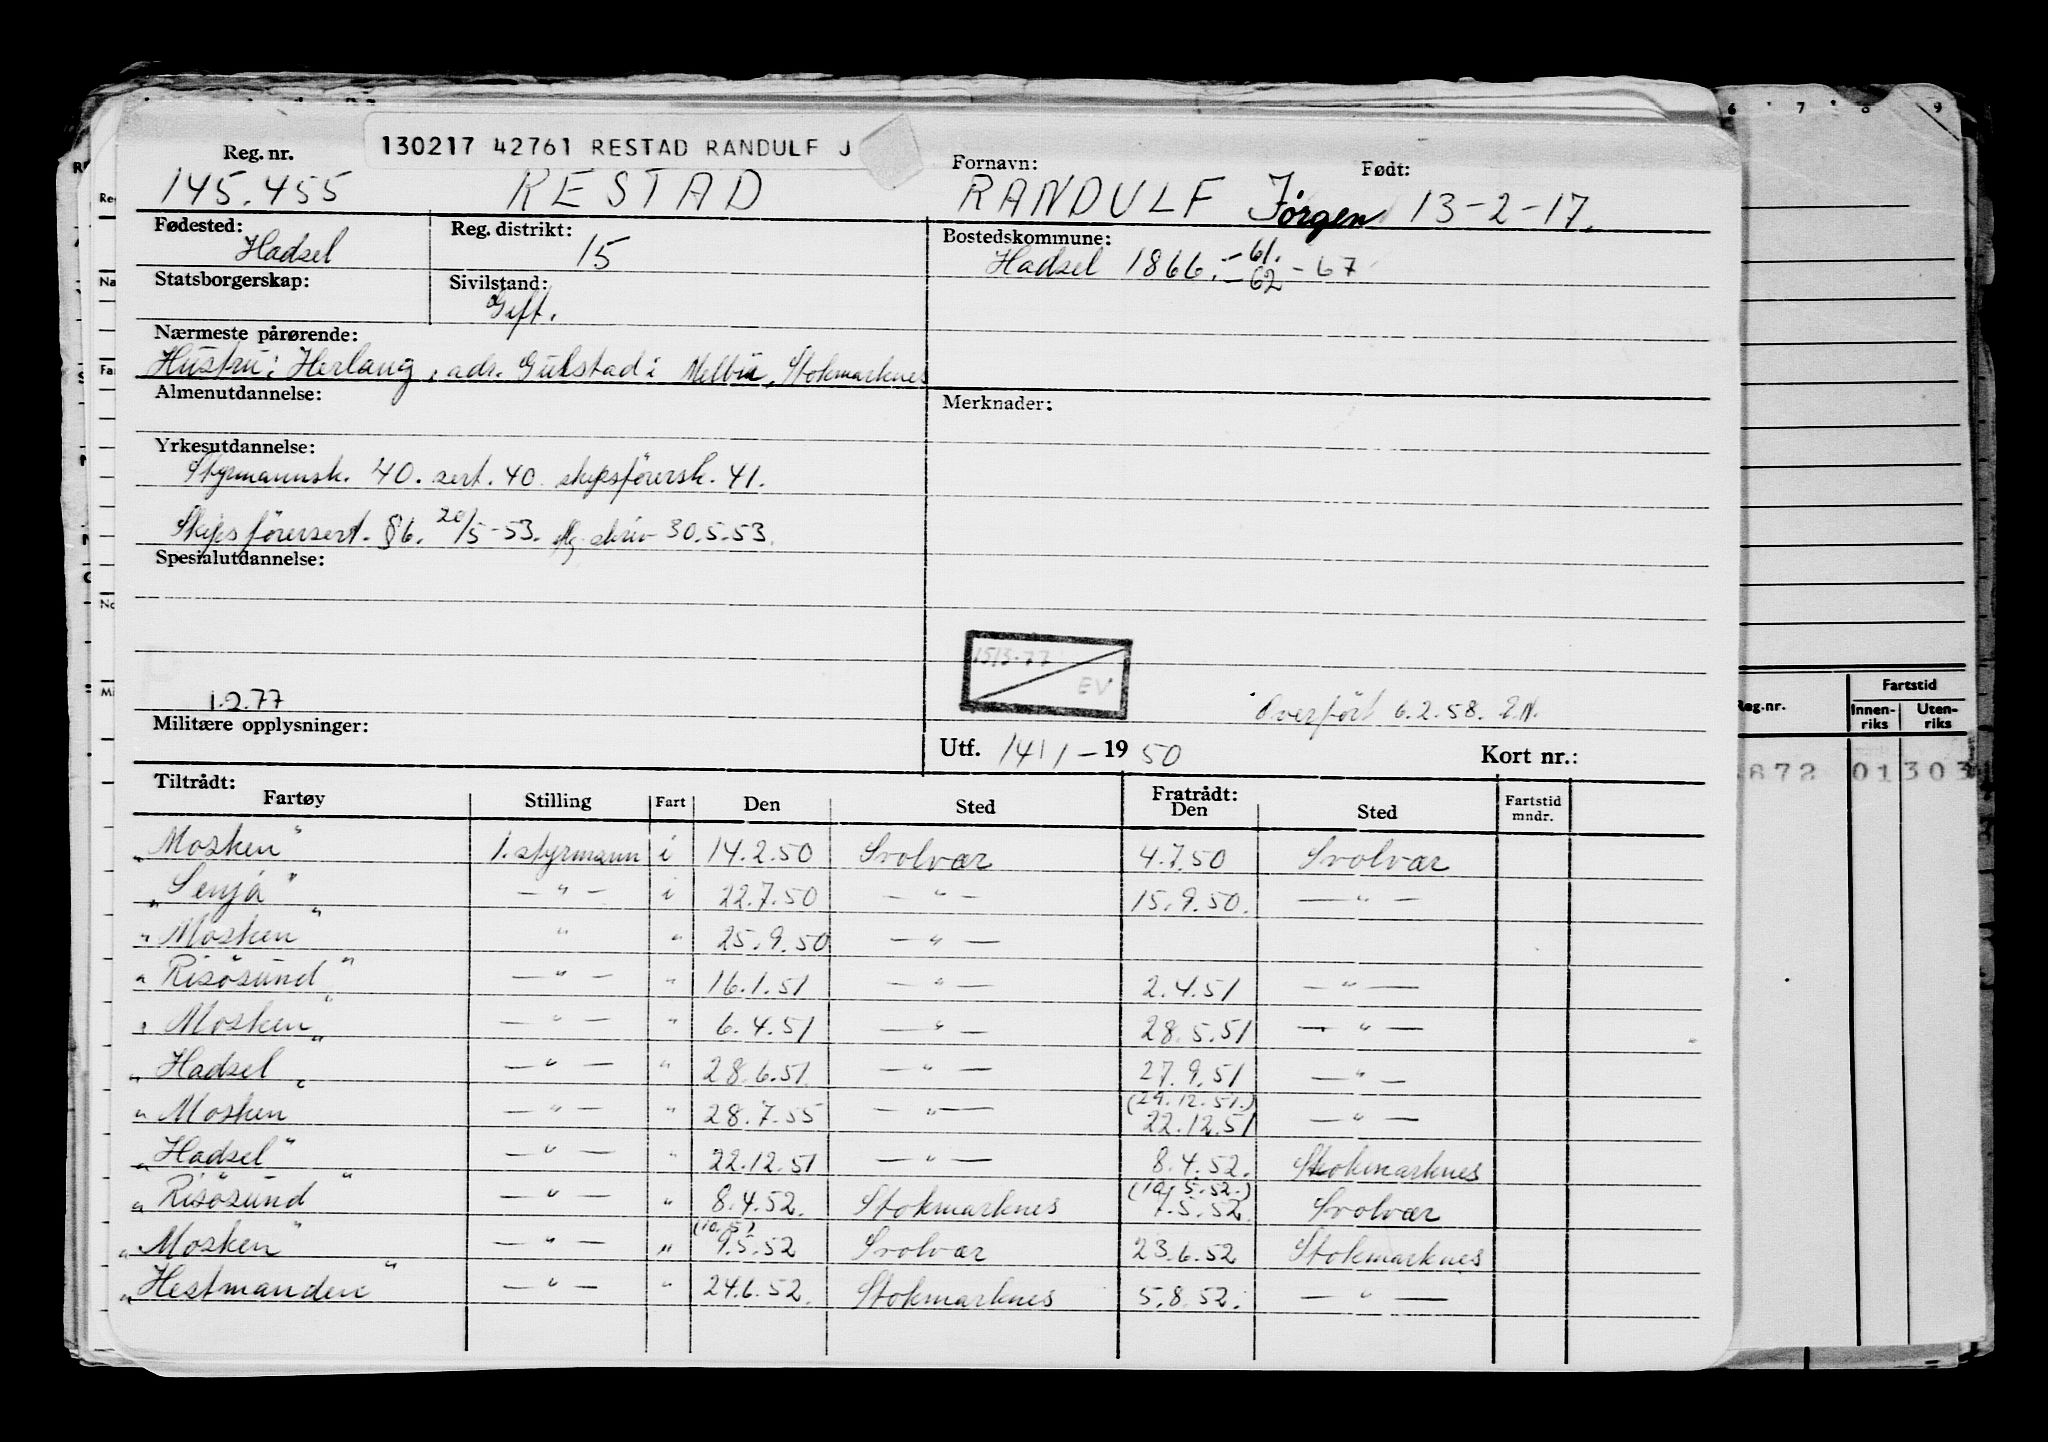 130217 42761 RESTAD RANDULF J
Reg. nr. Fornavn: Født:
145.455 RESTAD RANDULF Jørgen 13-2-17.
Fødested: Hadsel Reg. distrikt: 15 Bostedskommune: Hadsel 1866. -61. -62 -67
Statsborgerskap: Sivilstand: Gift.
Nærmeste pårørende:
Hustru: Herlaug, adr. Gulstad i Melbu, Stokmarknes
Almenutdannelse: Merknader:
Yrkesutdannelse:
Styrmannsk. 40. sert. 40. skipsførersk. 41.
Skipsførersert. §6. 20/5-53. skriv 30.5.53.
Spesialutdannelse:
1513-77
EV
1.2.77
Overført 6.2.58.
Militære opplysninger:
Utf. 14/1-1950 Kort nr.:
Tiltrådt: Fratrådt:
Fartøy Stilling Fart Den Sted Den Sted Fartstid mndr.
„Mosken" 1. styrmann i 14.2.50 Svolvær 4.7.50 Svolvær
„Senja" — " — i 22.7.50 — " — 15.9.50. — " —
„Mosken" " " 25.9.50 — " —
„Risøsund" — " — " 16.1.51 — " — 2.4.51 — " —
„Mosken" — " — " 6.4.51 — " — 28.5.51 — " —
„Hadsel" — " — " 28.6.51 — " — 27.9.51 — " —
(24.12.51.)
„Mosken" — " — " 28.7.55 — " — 22.12.51 — " —
„Hadsel" — " — " 22.12.51 — " — 8.4.52. Stokmarknes
(10.5.52.)
„Risøsund" — " — " 8.4.52. Stokmarknes 7.5.52 Svolvær
(10.5)
„Mosken" — " — " 9.5.52 Svolvær 23.6.52 Stokmarknes
„Hestmanden" — " — " 24.6.52. Stokmarknes 5.8.52. — " —
6 7 8 9
Reg.nr. Fartstid
Innen-riks Uten-riks
872 01 303